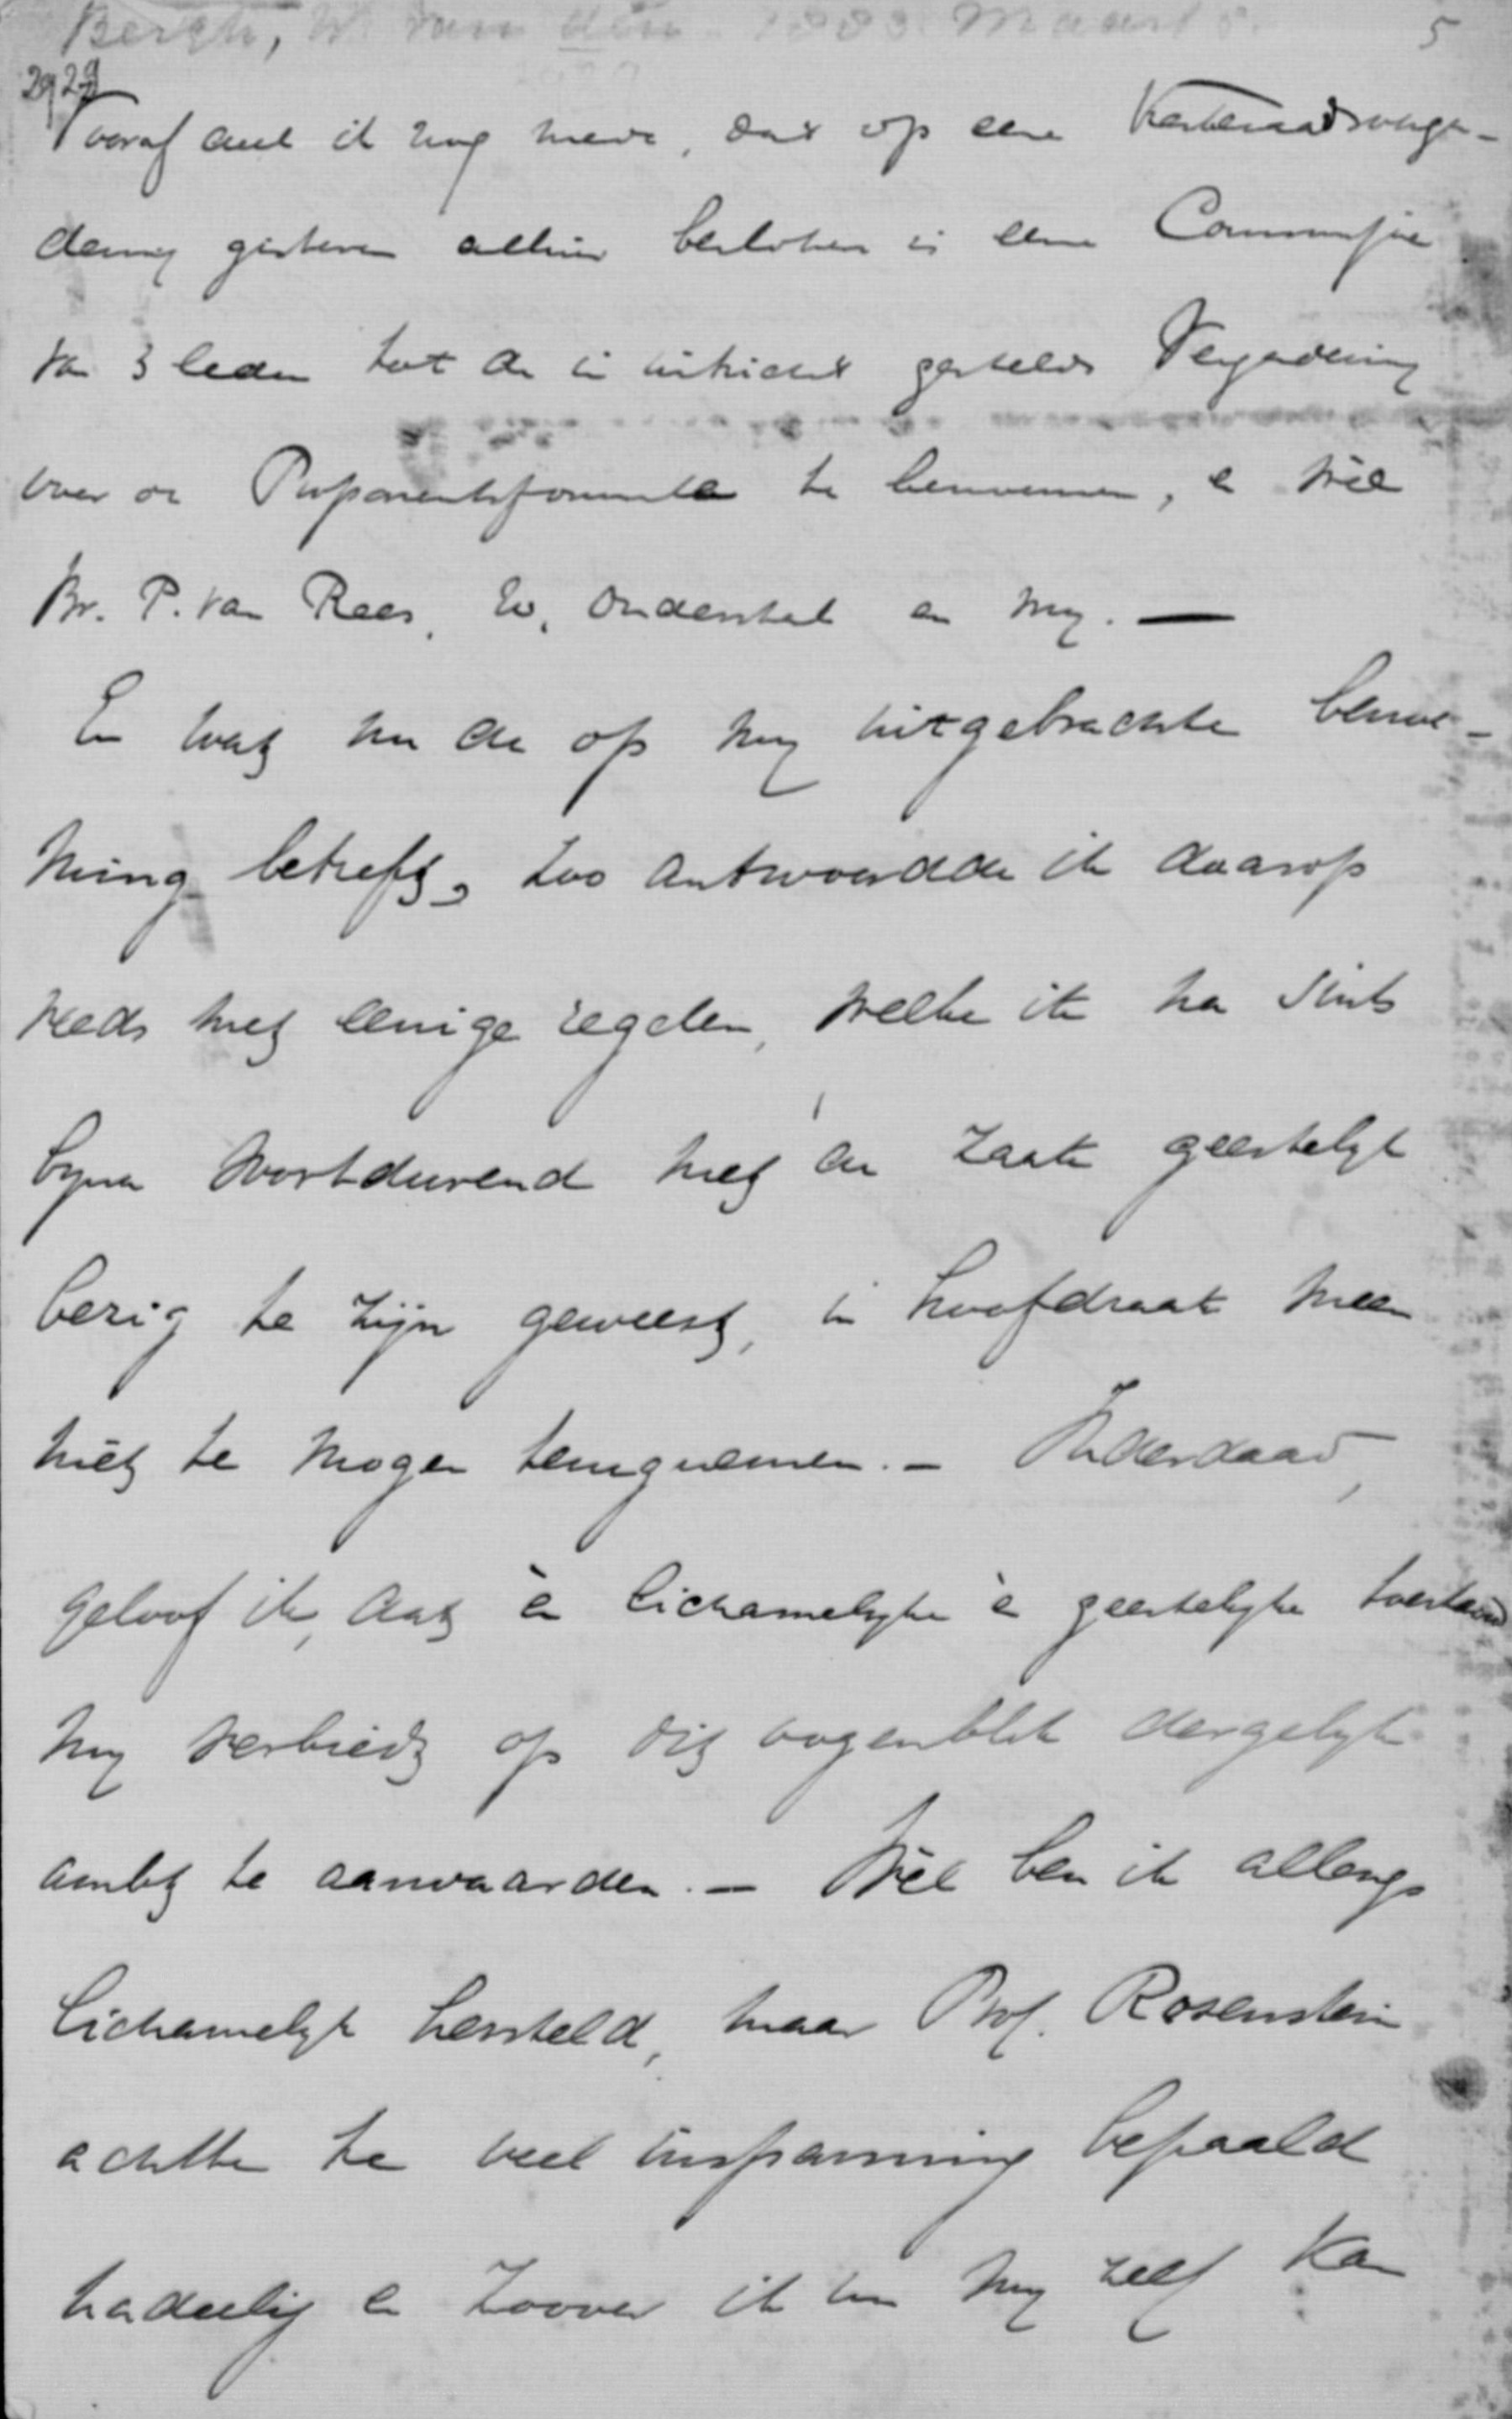 Bergh, W. van den 1883 Maart 5. 5
2929
Vooraf deel ik nog mede, dat op eene Kerkeraadsverga-
dering gisteren alhier besloten is eene Commissie
van 3 leden tot de in uitzicht gestelde Vergadering
over de Proponentsformule te benoemen, en wel
Br. P. van Rees, Ev. Ondenstal en my. —
En wat nu de op my uitgebrachte benoe-
ming betreft, zoo antwoordde ik daarop
reeds met eenige regelen, welke ik na sints
byna voortdurend met de zaak geestelyk
bezig te zijn geweest, in hoofdzaak meen
niet te mogen terugnemen. – Inderdaad,
geloof ik, dat èn lichamelyke èn geestelyke toestand
my verbiedt op dit oogenblik dergelyk
ambt te aanvaarden. – Wel ben ik allengs
lichamelyk hersteld, maar Prof. Rosenstein
achtte te veel inspanning bepaald
nadeelig en zoover ik en my zelf kan